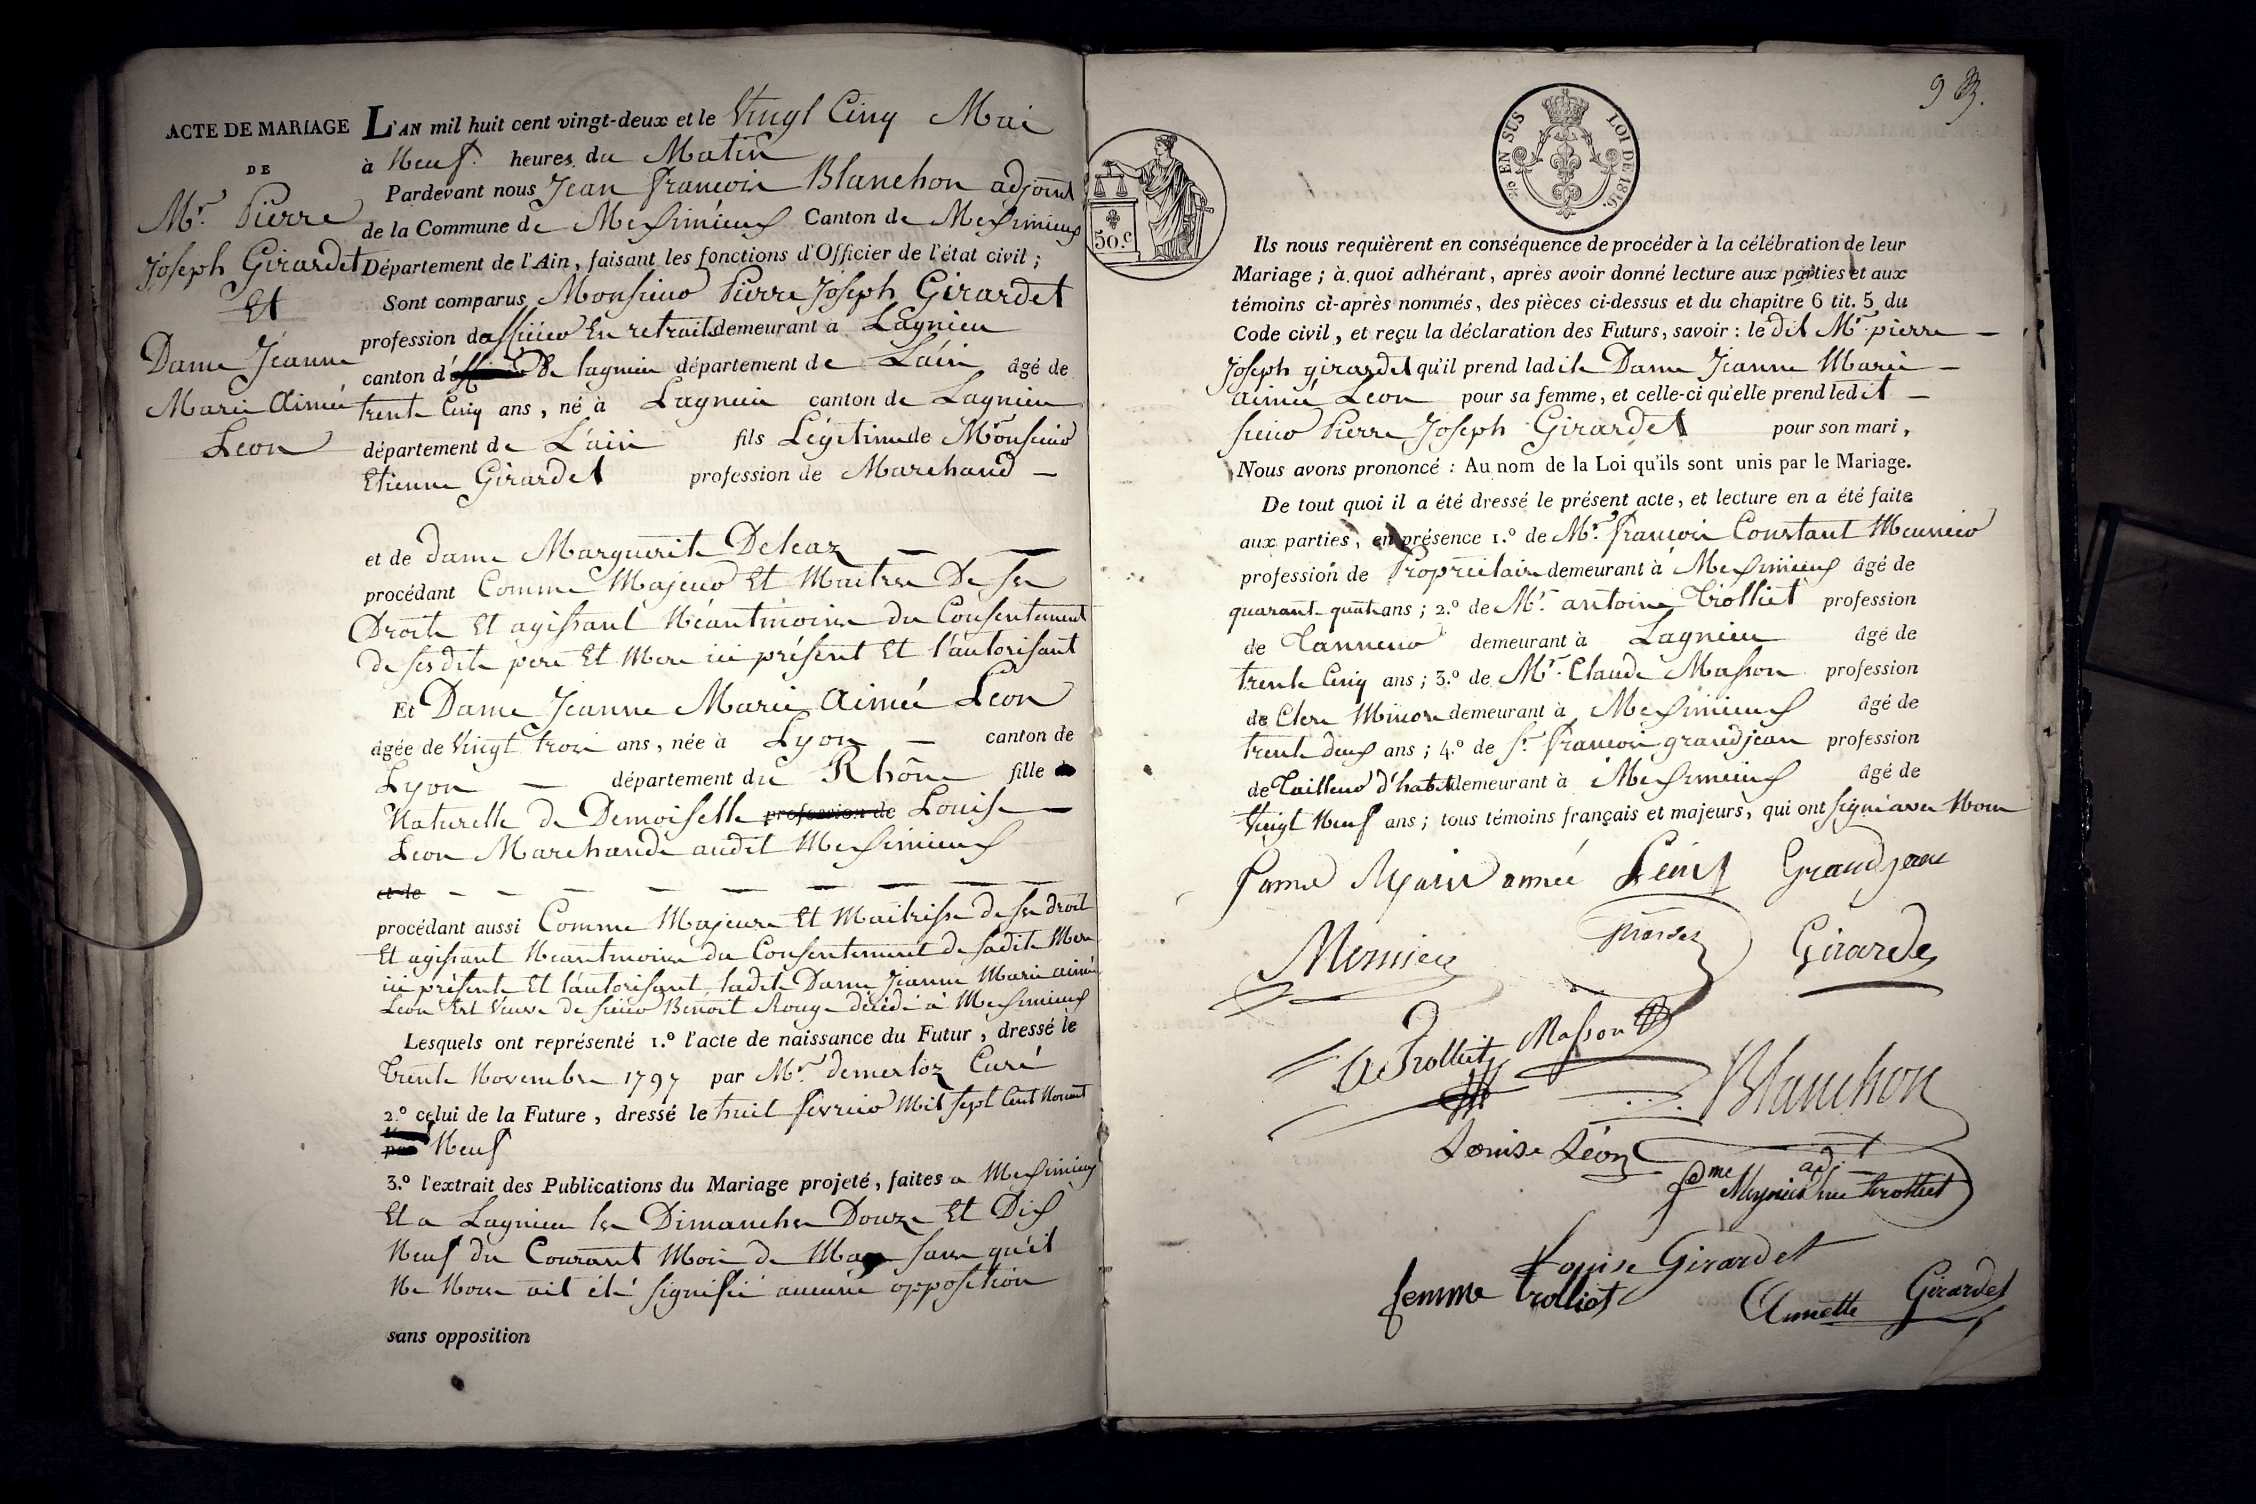 ACTE DE MARIAGE
DE
Mr. Pierre
Joseph Girardet
Et
Dame Jeanne
Marie Aimée
Leon
L'AN mil huit cent vingt-deux et le Vingt Cinq Mai
à Neuf heures du Matin
Pardevant nous Jean françois Blanchon adjoint
de la Commune de Meximieux Canton de Meximieux
Département de l'Ain, faisant les fonctions d'Officier de l'état civil ;
Sont comparus Monsieur Pierre Joseph Girardet
profession d'officier En retraite demeurant a Lagnieu
canton de lagnieu département de L'ain âgé de
trente Cinq ans, né à Lagnieu canton de Lagnieu
département de L'ain fils Légitime de Monsieur
Etienne Girardet profession de Marchand —
et de dame Marguerite Deleaz — —
procédant Comme Majeur Et Maitre De Ses
Droits Et agissant Néantmoins du Consentement
de sesdits pere Et Mere ici présent Et l'autorisant
Et Dame Jeanne Marie Aimée Leon
âgée de Vingt trois ans, née à Lyon — canton de
Lyon — département du Rhône fille
Naturelle de Demoiselle profession de Louise —
Leon Marchande audit Meximieux
et de — — — — — — — —
procédant aussi Comme Majeure Et Maitrisse de ses droits
Et agissant Néantmoins du Consentement de sadite Mere
ici présente Et l'autorisant, ladite Dame Jeanne Marie aimée
Leon Est Veuve de sieur Benoit Rouge décédé à Meximieux
Lesquels ont représenté 1.º l'acte de naissance du Futur, dressé le
trente Novembre 1797 par Mr. demerloz Curé
2.º celui de la Future, dressé le huit fevrier Mil sept Cent Nonant
par Neuf
3.º l'extrait des Publications du Mariage projeté, faites a Meximieux
Et a Lagnieu les Dimanches Douze Et Dix
Neuf du Courant Mois de May sans qu'il
Ne Nous ait été signifié aucune opposition
sans opposition
93.
50.c
EN SUS
LOI DE 1816.
Ils nous requièrent en conséquence de procéder à la célébration de leur
Mariage ; à quoi adhérant, après avoir donné lecture aux parties et aux
témoins ci-après nommés, des pièces ci-dessus et du chapitre 6 tit. 5 du
Code civil, et reçu la déclaration des Futurs, savoir : le dit Mr. pierre —
Joseph girardet qu'il prend ladite Dame Jeanne Marie —
aimée Leon pour sa femme, et celle-ci qu'elle prend ledit —
sieur Pierre Joseph Girardet pour son mari,
Nous avons prononcé : Au nom de la Loi qu'ils sont unis par le Mariage.
De tout quoi il a été dressé le présent acte, et lecture en a été faite
aux parties, en présence 1.º de Mr. françois Constant Meunier
profession de Propriétaire demeurant à Meximieux âgé de
quarante quatre ans ; 2.º de Mr. antoine Trolliet profession
de Tanneur demeurant à Lagnieu âgé de
trente Cinq ans ; 3.º de Mr. Claude Masson profession
de Clerc Minore demeurant à Meximieux âgé de
trente deux ans ; 4.º de Sr. françois grandjean profession
de Tailleur d'habit demeurant à Meximieux âgé de
Vingt Neuf ans ; tous témoins français et majeurs, qui ont signé avec Nous
Grandjean
Girardet
A Trolliet Masson
Blanchon
adj.
Louise Léon
née trolliet
Louise Girardet
femme trolliet
Annette Girardet